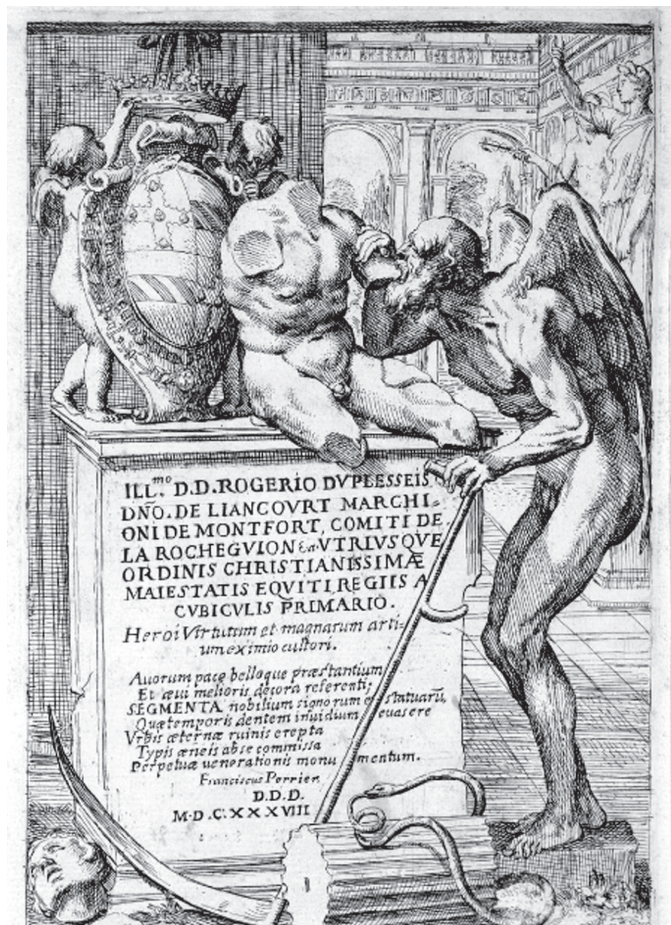 ILL.mo D.D.ROGERIO DVPLESSEIS
DÑO. DE LIANCOVRT MARCHI-
ONI DE MONTFORT, COMITI DE
LA ROCHEGVION & VTRIVSQVE
ORDINIS CHRISTIANISSIMÆ
MAIESTATIS EQVITI REGIIS A
CVBICVLIS PRIMARIO.
Heroi Virtutum et magnarum arti-
um eximio cultori.
Auorum pace belloque præstantium
Et æui melioris decora referenti;
SEGMENTA nobilium signorum et statuarũ,
Quæ temporis dentem inuidium euasere
Vrbis æternæ ruinis erepta
Typis æneis ab se commissa
Perpetuæ venerationis monumentum.
Franciscus Perrier.
D.D.D.
M.D.C.XXXVIII